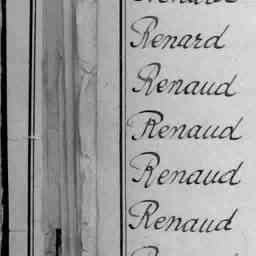 Renard
Renaud
Renaud
Renaud
Renaud